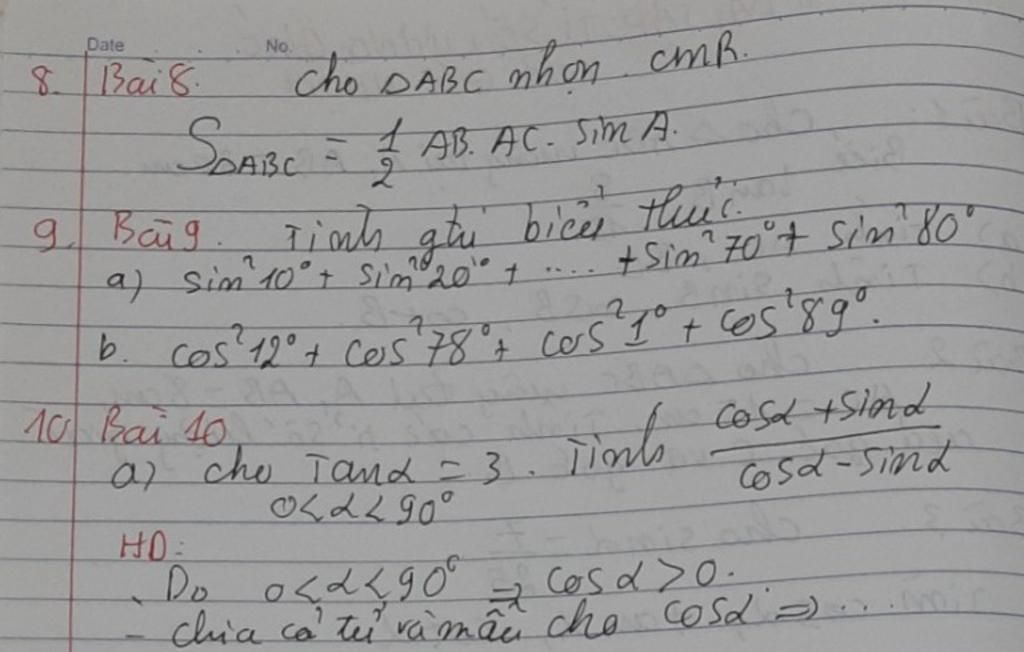 Date No.
8. Bài 8. Cho ΔABC nhọn. CMR.
S_ΔABC = 1/2 AB. AC. sin A.
9. Bài 9. Tính gtrị biểu thức.
a) sin²10° + sin²20° + .... + sin²70° + sin²80°
b. cos²12° + cos²78° + cos²1° + cos²89°.
10 Bài 10
a) cho Tanα = 3. Tính (cosα + sinα)/(cosα - sinα)
0<α<90°
HD:
. Do 0<α<90° => cosα>0.
- chia cả tử và mẫu cho cosα => ...